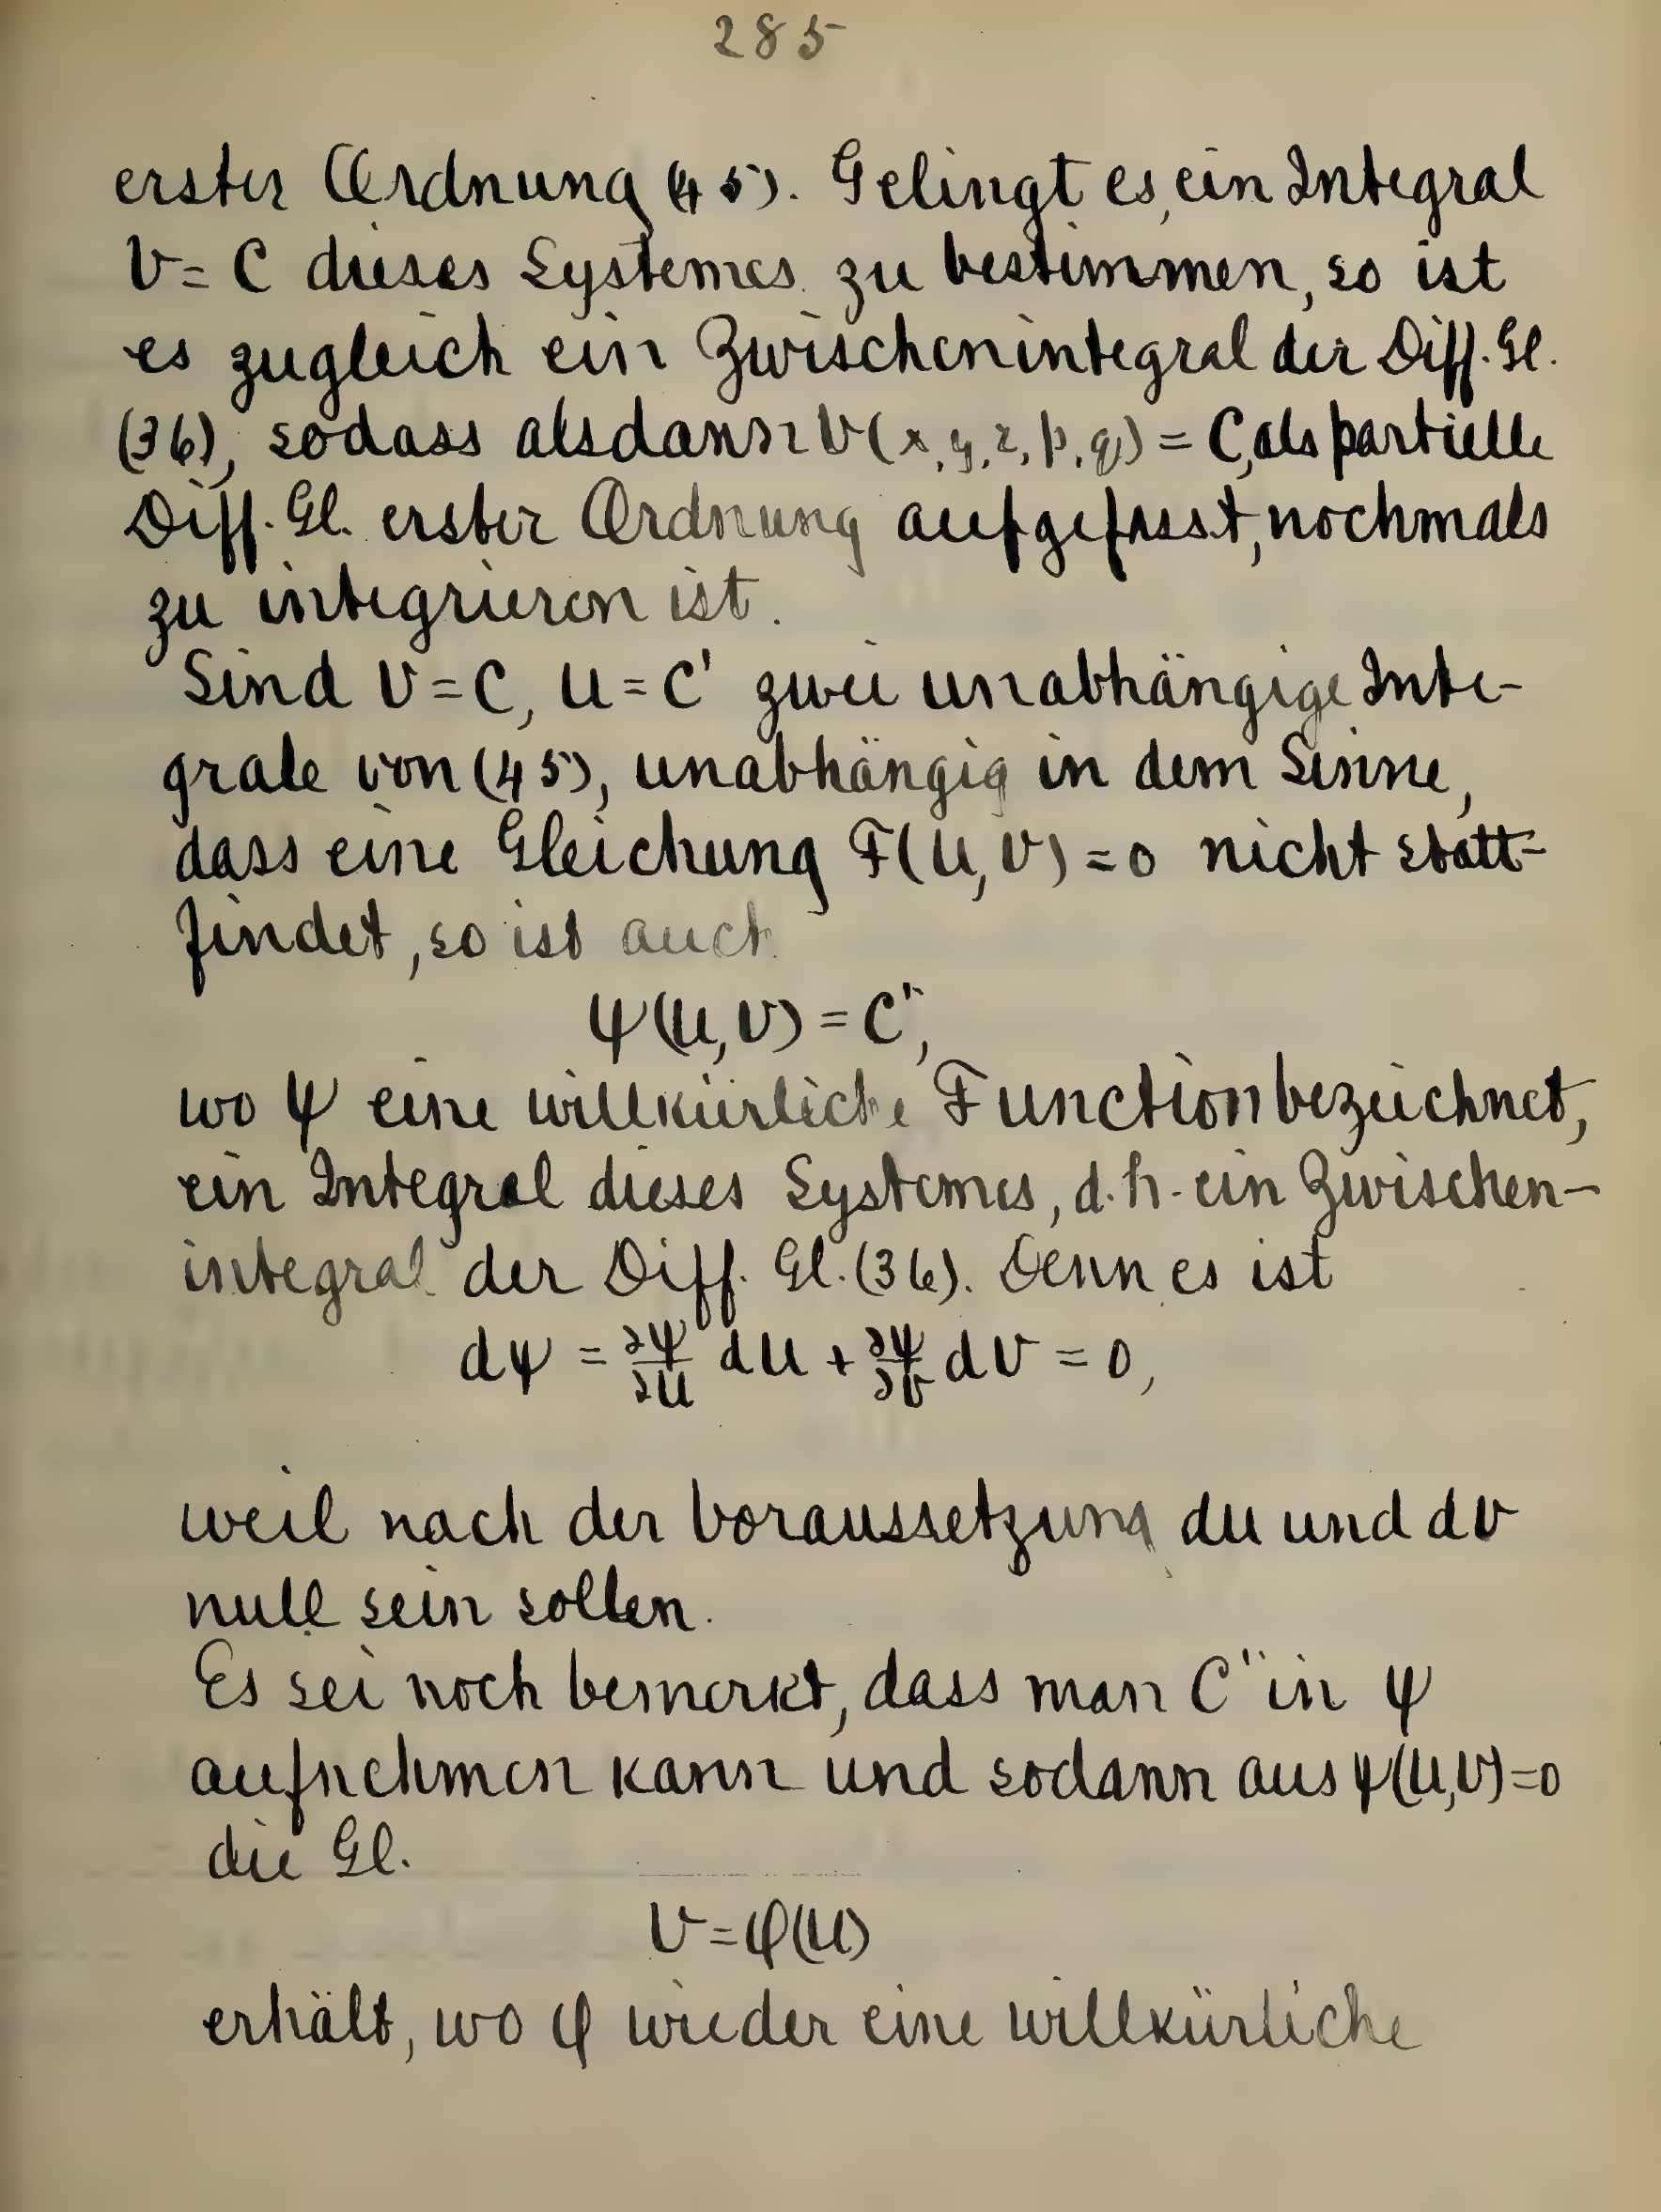 285
erster Ordnung (45). Gelingt es, ein Integral
V = C dieses Systemes zu bestimmen, so ist
es zugleich ein Zwischenintegral der Diff. Gl.
(36), sodass alsdann V(x, y, z, p, q) = C, als partielle
Diff. Gl. erster Ordnung aufgefasst, nochmals
zu integrieren ist.
Sind V = C, U = C' zwei unabhängige Inte-
grale von (45), unabhängig in dem Sinne,
dass eine Gleichung F(U, V) = 0 nicht statt-
findet, so ist auch
ψ(U, V) = C'',
wo ψ eine willkürliche Function bezeichnet,
ein Integral dieses Systemes, d. h. ein Zwischen-
integral der Diff. Gl. (36). Denn es ist
dψ = ∂ψ/∂U dU + ∂ψ/∂V dV = 0,
weil nach der Voraussetzung dU und dV
null sein sollen.
Es sei noch bemerkt, dass man C'' in ψ
aufnehmen kann und sodann aus ψ(U, V) = 0
die Gl.
V = φ(U)
erhält, wo φ wieder eine willkürliche